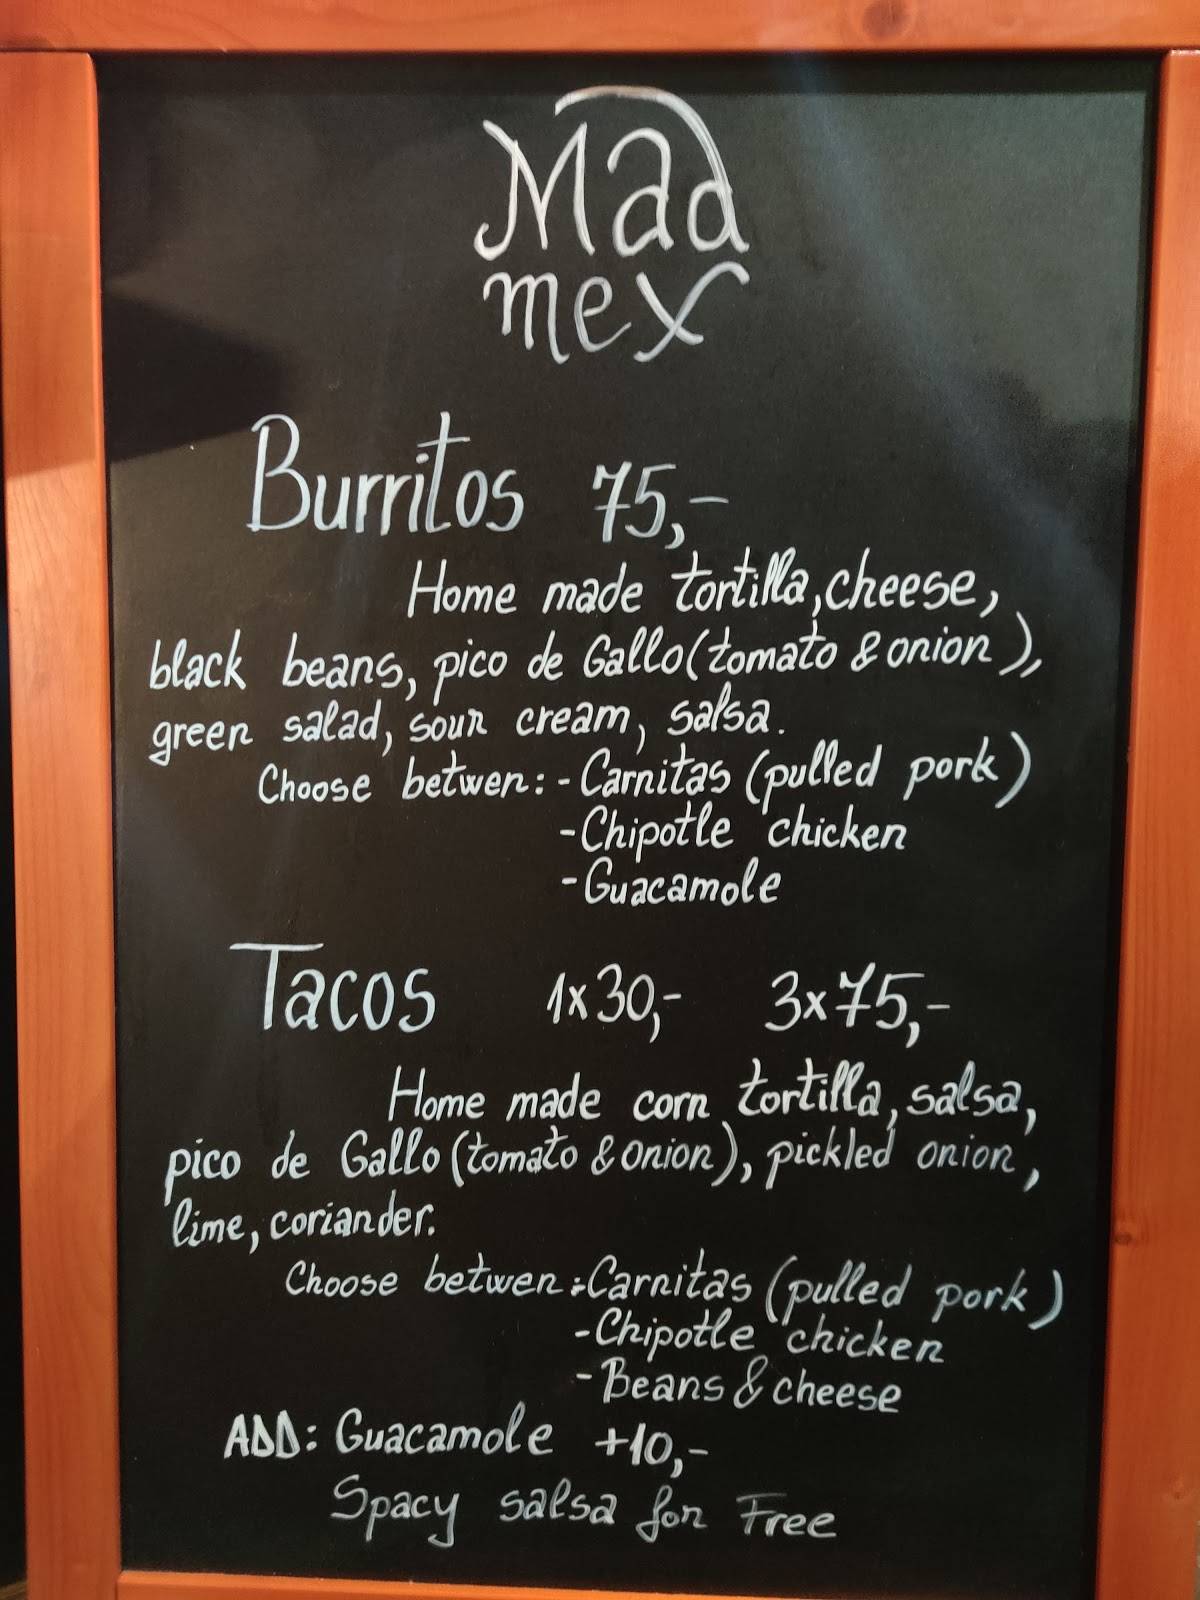 Mad
mex
Burritos 75,-
Home made tortilla, cheese,
black beans, pico de Gallo (tomato & onion),
green salad, sour cream, salsa.
Choose betwen: - Carnitas (pulled pork)
- Chipotle chicken
- Guacamole
Tacos 1x30,- 3x75,-
Home made corn tortilla, salsa,
pico de Gallo (tomato & onion), pickled onion,
lime, coriander.
Choose betwen: Carnitas (pulled pork)
- Chipotle chicken
- Beans & cheese
ADD: Guacamole +10,-
Spacy salsa for Free